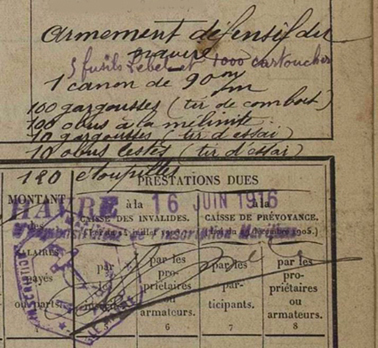 armement défensif du
navire
5 fusils Lebel et 1000 cartouches
1 canon de 90 m/m
100 gargousses (tir de combat)
100 obus à la mélinite
10 gargousses (tir d'essai)
10 obus lestés (tir d'essai)
120 étoupilles
PRESTATIONS DUES
MONTANT
HAVRE
à la 16 JUIN 1916 à la
CAISSE DES INVALIDES. CAISSE DE PRÉVOYANCE.
SALAIRES
payés
ou parts
par les par les par les par les
pro-
priétaires
ou
armateurs.
participants.
pro-
priétaires
ou
armateurs.
6 7 8